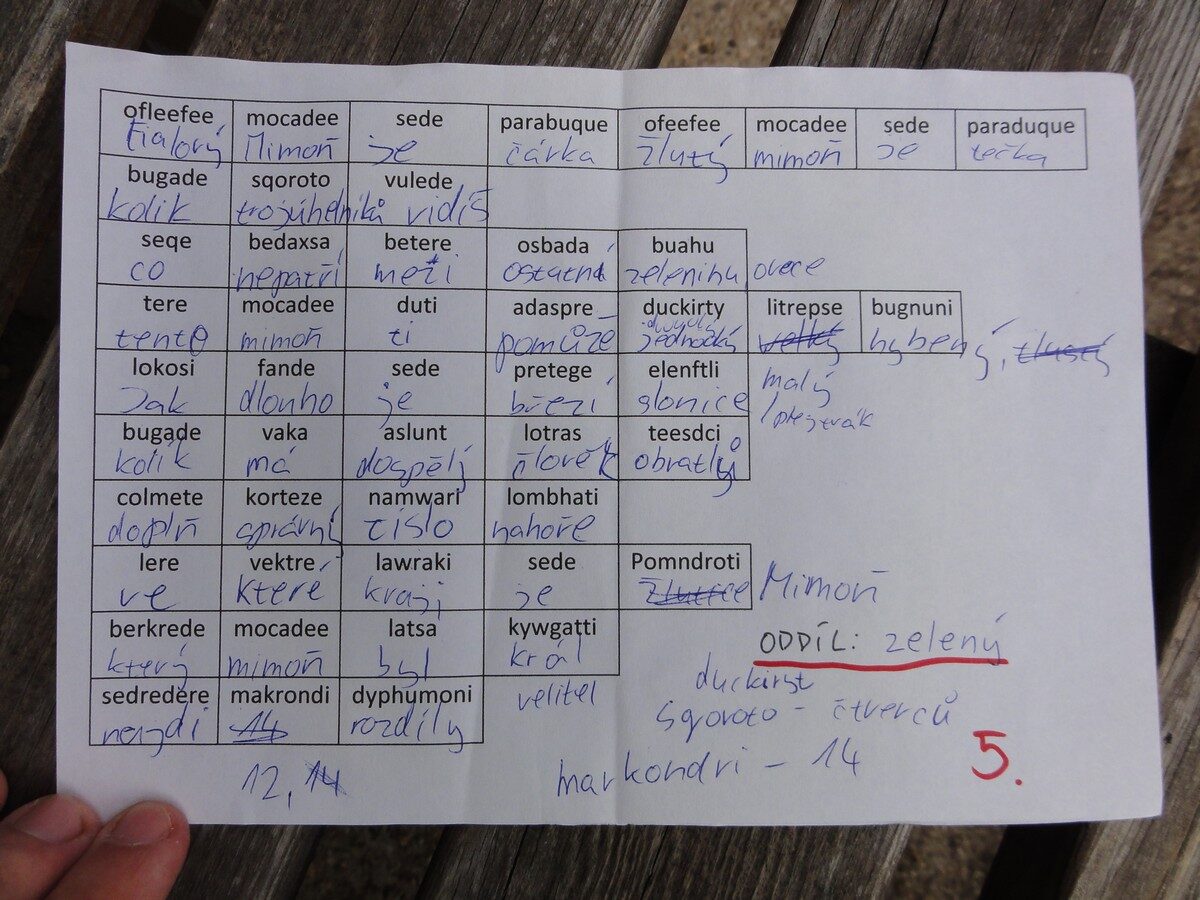 ofleefee mocadee sede parabuque ofeefee mocadee sede paraduque
Fialový Mimoň je čárka žlutý mimoň je tečka
bugade sqoroto vulede
kolik trojúhelníků vidíš
seqe bedaxsa betere osbada buahu
co nepatří mezi ostatní zeleninu, ovoce
tere mocadee duti adaspre duckirty litrepse bugnuni
tento mimoň ti pomůže jednooký velký hyben tlustý
lokosi fande sede pretege elenftli malý
Jak dlouho je březí slonice
bugade vaka aslunt lotras teesdci
kolik má dospělý člověk obratlů
colmete korteze namwari lombhati
doplň správní číslo nahoře
lere vektre lawraki sede Pomndroti
ve které kraji je Žlutice Mimoň
berkrede mocadee latsa kywgatti
který mimoň byl král
ODDÍL: zelený
sedredere makrondi dyphumoni velitel duckirst
najdi 14 rozdíly
sqoroto - čtverců
12, 14 markondri - 14 5.